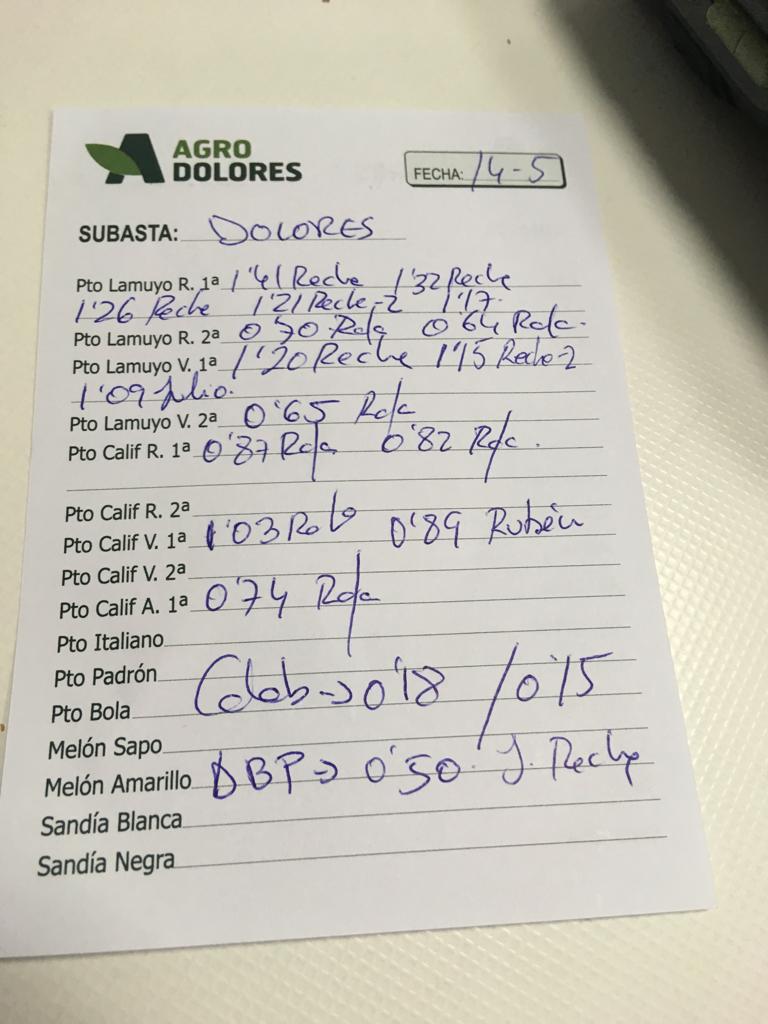 AGRO
DOLORES
FECHA: 14-5
SUBASTA: DOLORES
Pto Lamuyo R. 1ª 1'41 Reche 1'32 Reche
1'26 Reche 1'21 Reche-2 1'17.
Pto Lamuyo R. 2ª 0'70 Rafa 0'64 Rafa.
Pto Lamuyo V. 1ª 1'20 Reche 1'15 Reche-2
1'09 Julio.
Pto Lamuyo V. 2ª 0'65 Rafa
Pto Calif R. 1ª 0'87 Rafa 0'82 Rafa.
Pto Calif R. 2ª
Pto Calif V. 1ª 1'03 0'89 Rubén
Pto Calif V. 2ª
Pto Calif A. 1ª 0'74 Rafa
Pto Italiano
Pto Padrón
Pto Bola Calab→0'18 / 0'15
Melón Sapo
Melón Amarillo DBP→ 0'50. J. Reche
Sandía Blanca
Sandía Negra